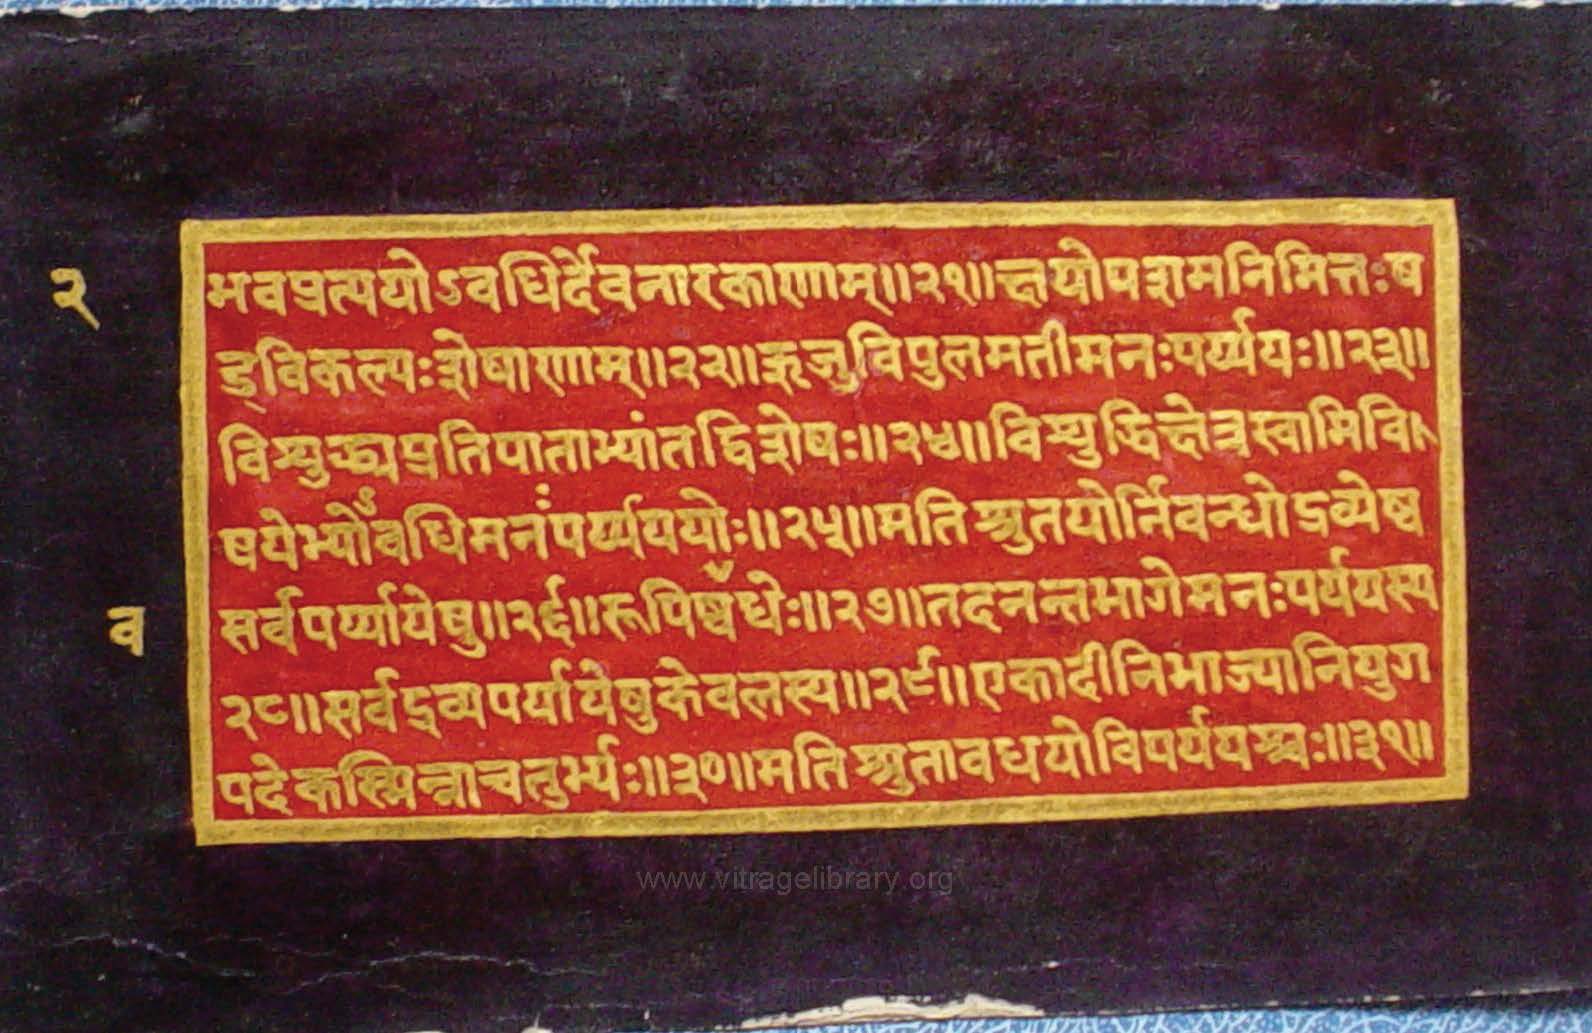 २
भवप्रत्ययोऽवधिर्देवनारकाणाम्॥२१॥क्षयोपशमनिमित्तःष
ड्विकल्पःशेषाणाम्॥२२॥ऋजुविपुलमतीमनःपर्य्ययः॥२३॥
विशुद्ध्यप्रतिपाताभ्यांतद्विशेषः॥२४॥विशुद्धिक्षेत्रस्वामिवि
षयेभ्योवधिमनःपर्य्यययोः॥२५॥मतिश्रुतयोर्निवन्धोद्रव्येष्व
व
सर्वपर्य्यायेषु॥२६॥रूपिष्वधेः॥२७॥तदनन्तभागेमनःपर्ययस्य
२८॥सर्वद्रव्यपर्यायेषुकेवलस्य॥२९॥एकादीनिभाज्यानियुग
पदेकस्मिन्नाचतुर्भ्यः॥३०॥मतिश्रुतावधयोविपर्ययश्चः॥३१॥
www.vitragelibrary.org